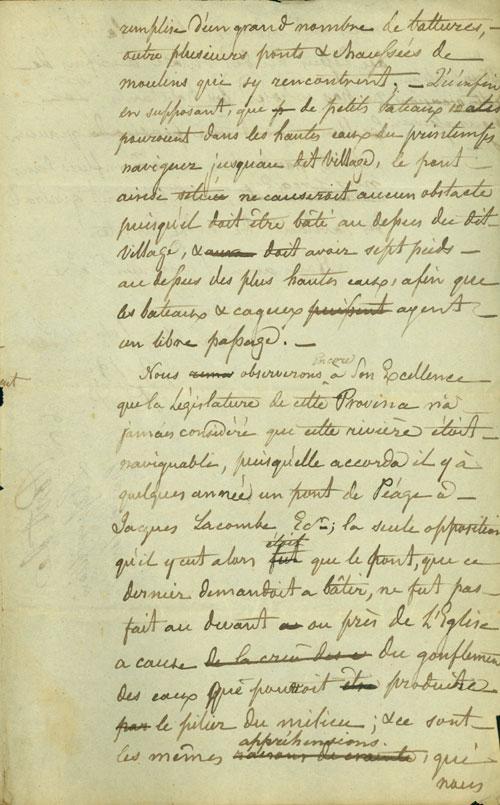 remplise d'un grand nombre de battures,
outre plusieurs ponts & chaussées de
moulins qui s'y rencontrent. — Qu'enfin
en supposant, que de petits bateaux
pouroient dans les hautes eaux du printemps
naviguer jusqu'au dit village, le pont
ainsi situé ne causeroit aucun obstacle
puisqu'il doit être bâti au dessus du dit
village, & aura doit avoir sept pieds
au dessus des plus hautes eaux, afin que
les bateaux & cageux puissent ayent
un libre passage. —
Nous observerons encore à Son Excellence
que la Législature de cette Province n'a
jamais considéré que cette rivière étoit
naviguable, puisqu'elle accorda il y a
quelques année un pont de Péage à
Jacques Lacombe Ecr; la seule opposition
qu'il y eut alors fut étoit que le pont, que ce
dernier demandoit a bâtir, ne fut pas
fait au devant a ou près de L'Eglise
a cause de la crue des e du gonflement
des eaux que pouroit être produire
par le pilier du milieu; & ce sont
les mêmes raisons de crainte appréhensions, qui
nous